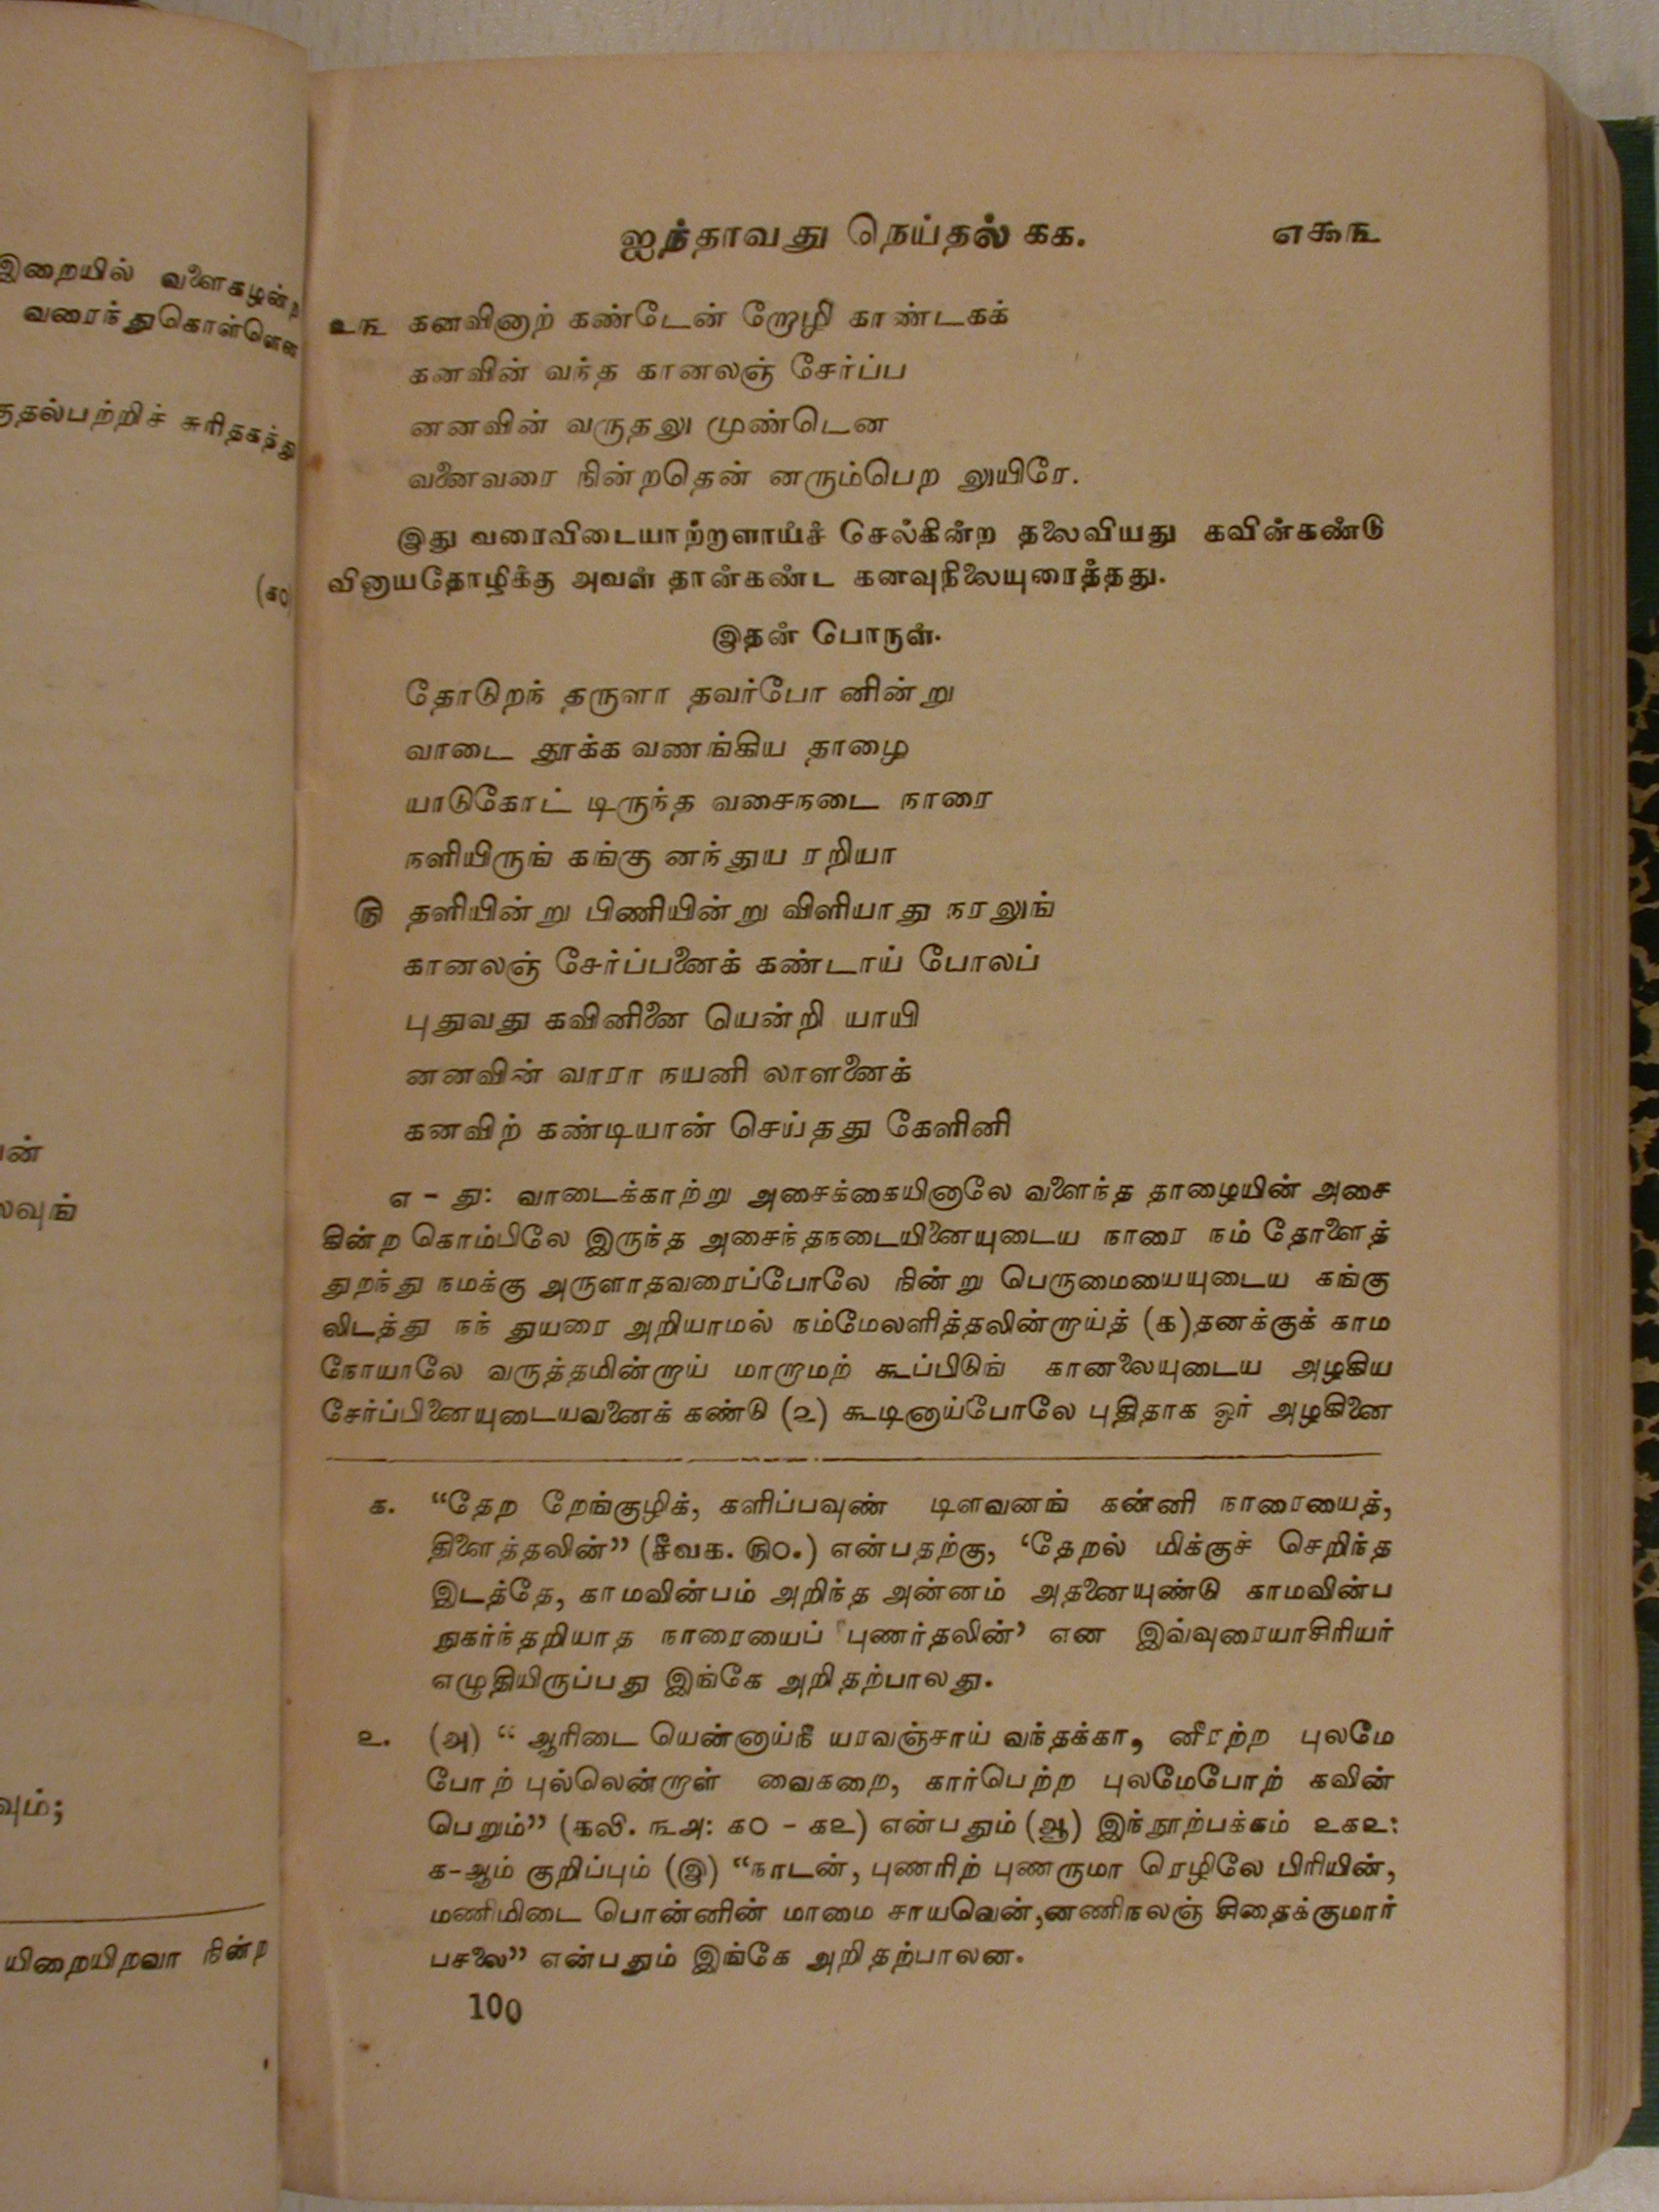 இறையில் வளைகழன்
வரைந்துகொள்ளென
குதல்பற்றிச் சுரிதகத்து
(க௦)
வுங்
வும்;
யிறையிறவா நின்ற
ஐந்தாவது நெய்தல் கக. ௭௯௩
௨௩ கனவினாற் கண்டேன் றோழி காண்டகக்
கனவின் வந்த கானலஞ் சேர்ப்ப
னனவின் வருதலு முண்டென
வனைவரை நின்றதென் னரும்பெற லுயிரே.
இது வரைவிடையாற்றளாய்ச் செல்கின்ற தலைவியது கவின்கண்டு
வினாயதோழிக்கு அவள் தான்கண்ட கனவுநிலையுரைத்தது.
இதன் பொருள்.
தோடுறந் தருளா தவர்போ னின்று
வாடை தூக்க வணங்கிய தாழை
யாடுகோட் டிருந்த வசைநடை நாரை
நளியிருங் கங்கு னந்துய ரறியா
௫ தளியின்று பிணியின்று விளியாது நரலுங்
கானலஞ் சேர்ப்பனைக் கண்டாய் போலப்
புதுவது கவினினை யென்றி யாயி
னனவின் வாரா நயனி லாளனைக்
கனவிற் கண்டியான் செய்தது கேளினி
எ - து: வாடைக்காற்று அசைக்கையினாலே வளைந்த தாழையின் அசை
கின்ற கொம்பிலே இருந்த அசைந்தநடையினையுடைய நாரை நம் தோளைத்
துறந்து நமக்கு அருளாதவரைப்போலே நின்று பெருமையையுடைய கங்கு
லிடத்து நந் துயரை அறியாமல் நம்மேலளித்தலின்றாய்த் (௧)தனக்குக் காம
நோயாலே வருத்தமின்றாய் மாறாமற் கூப்பிடுங் கானலையுடைய அழகிய
சேர்ப்பினையுடையவனைக் கண்டு (௨) கூடினாய்போலே புதிதாக ஓர் அழகினை
௧. “தேற றேங்குழிக், களிப்பவுண் டிளவனங் கன்னி நாரையைத்,
திளைத்தலின்” (சீவக. ௫௦.) என்பதற்கு, ‘தேறல் மிக்குச் செறிந்த
இடத்தே, காமவின்பம் அறிந்த அன்னம் அதனையுண்டு காமவின்ப
நுகர்ந்தறியாத நாரையைப் புணர்தலின்’ என இவ்வுரையாசிரியர்
எழுதியிருப்பது இங்கே அறிதற்பாலது.
௨. (அ) “ ஆரிடை யென்னாய்நீ யரவஞ்சாய் வந்தக்கா, னீரற்ற புலமே
போற் புல்லென்றாள் வைகறை, கார்பெற்ற புலமேபோற் கவின்
பெறும்” (கலி. ௩௮: ௧௦ - ௧௨) என்பதும் (ஆ) இந்நூற்பக்கம் ௨௧௨:
௧-ஆம் குறிப்பும் (இ) “நாடன், புணரிற் புணருமா ரெழிலே பிரியின்,
மணிமிடை பொன்னின் மாமை சாயவென்,னணிநலஞ் சிதைக்குமார்
பசலை” என்பதும் இங்கே அறிதற்பாலன.
100